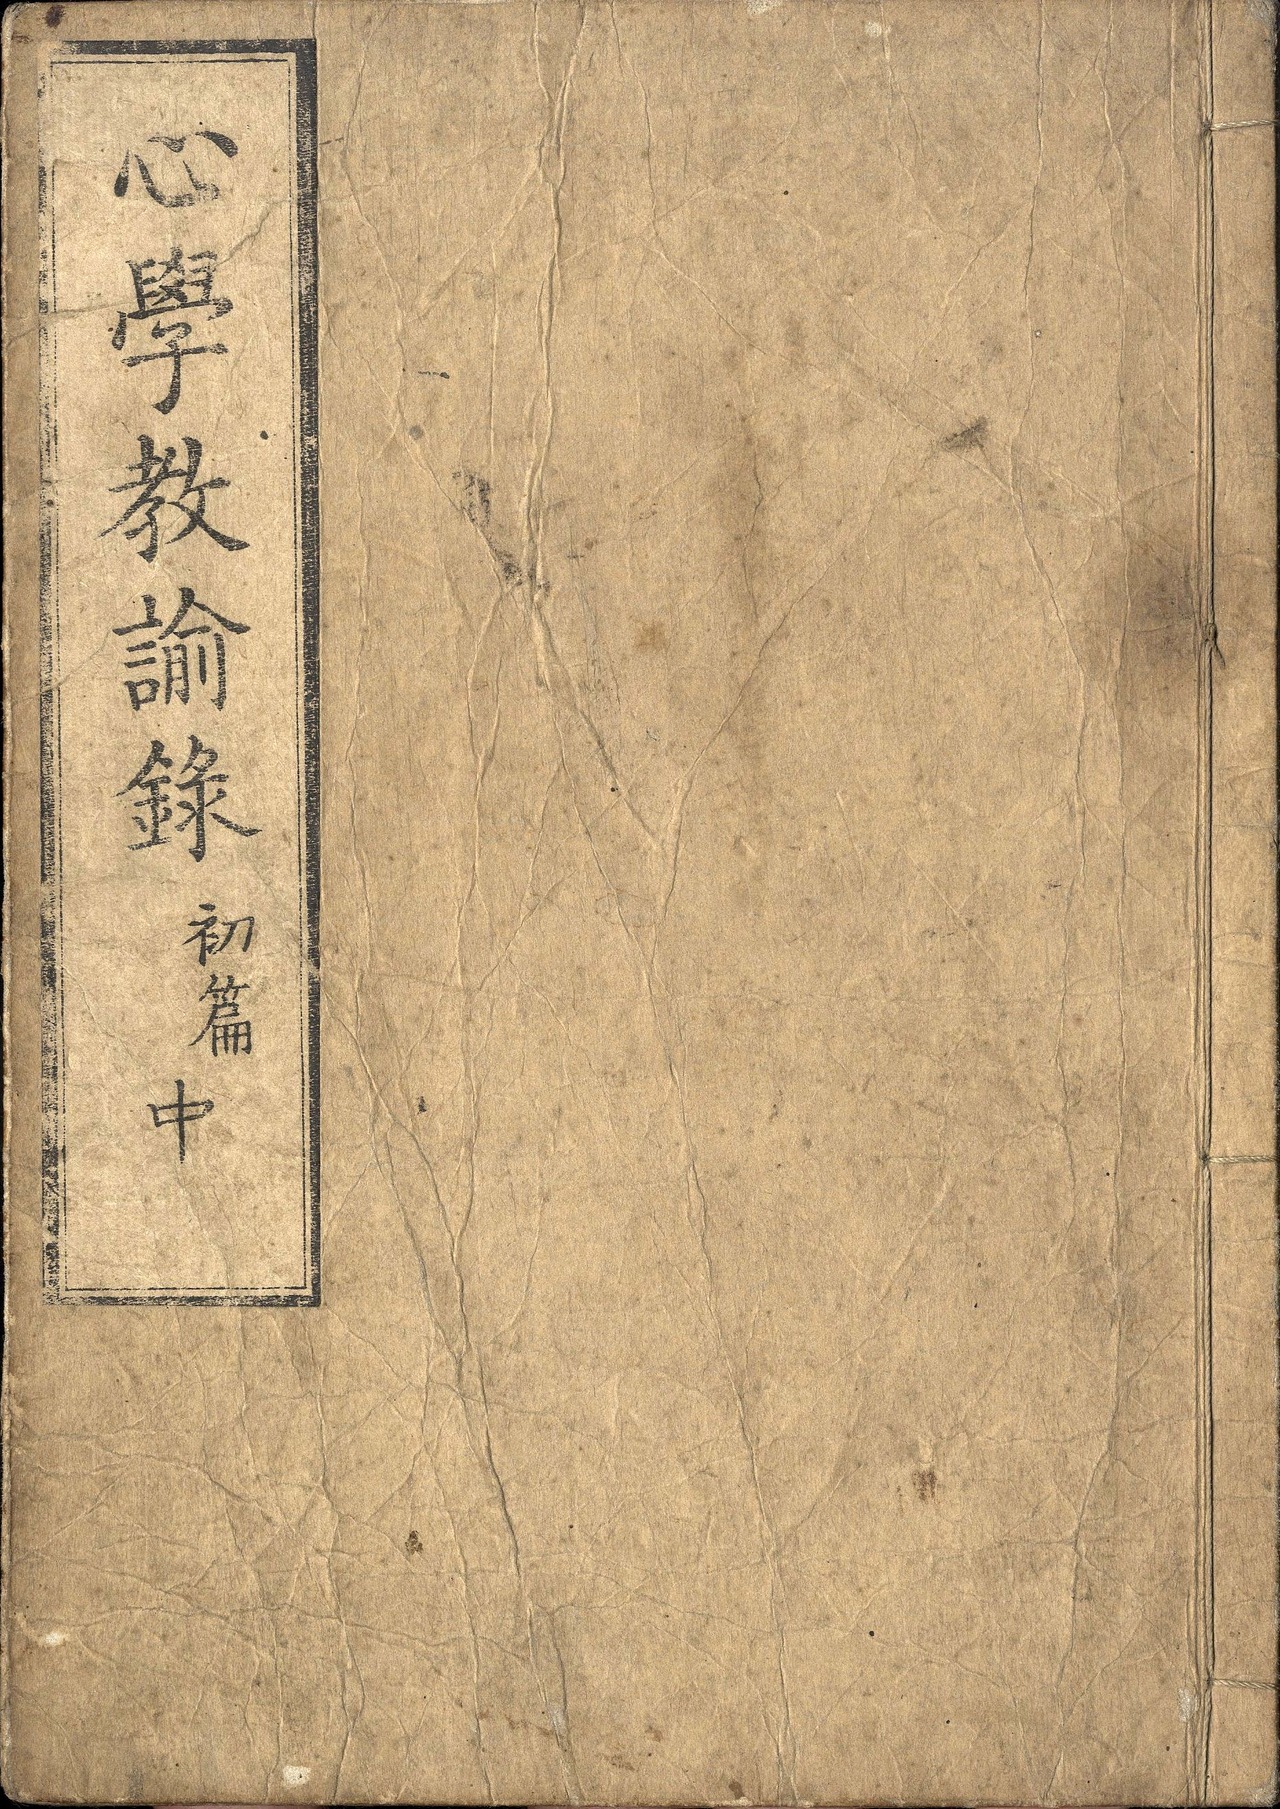 心學教諭錄
初篇
中